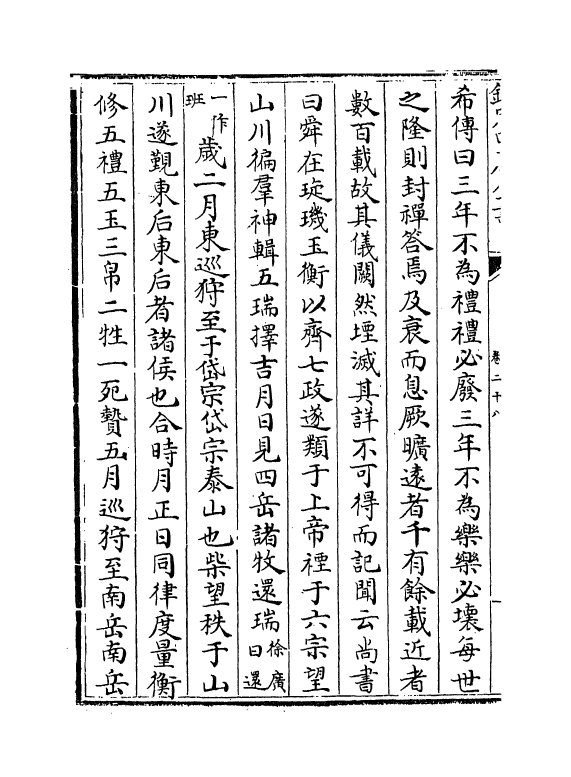 卷二十八
希傳曰三年不為禮禮必廢三年不為樂樂必壞每世
之隆則封禪答焉及衰而息厥曠逺者千有餘載近者
數百載故其儀闕然堙滅其詳不可得而記聞云尚書
曰舜在琁璣玉衡以齊七政遂類于上帝禋于六宗望
山川徧羣神輯五瑞擇吉月日見四岳諸牧還瑞徐廣曰還
一作班歲二月東巡狩至于岱宗岱宗泰山也柴望秩于山
川遂覲東后東后者諸侯也合時月正日同律度量衡
修五禮五玉三帛二牲一死贄五月巡狩至南岳南岳